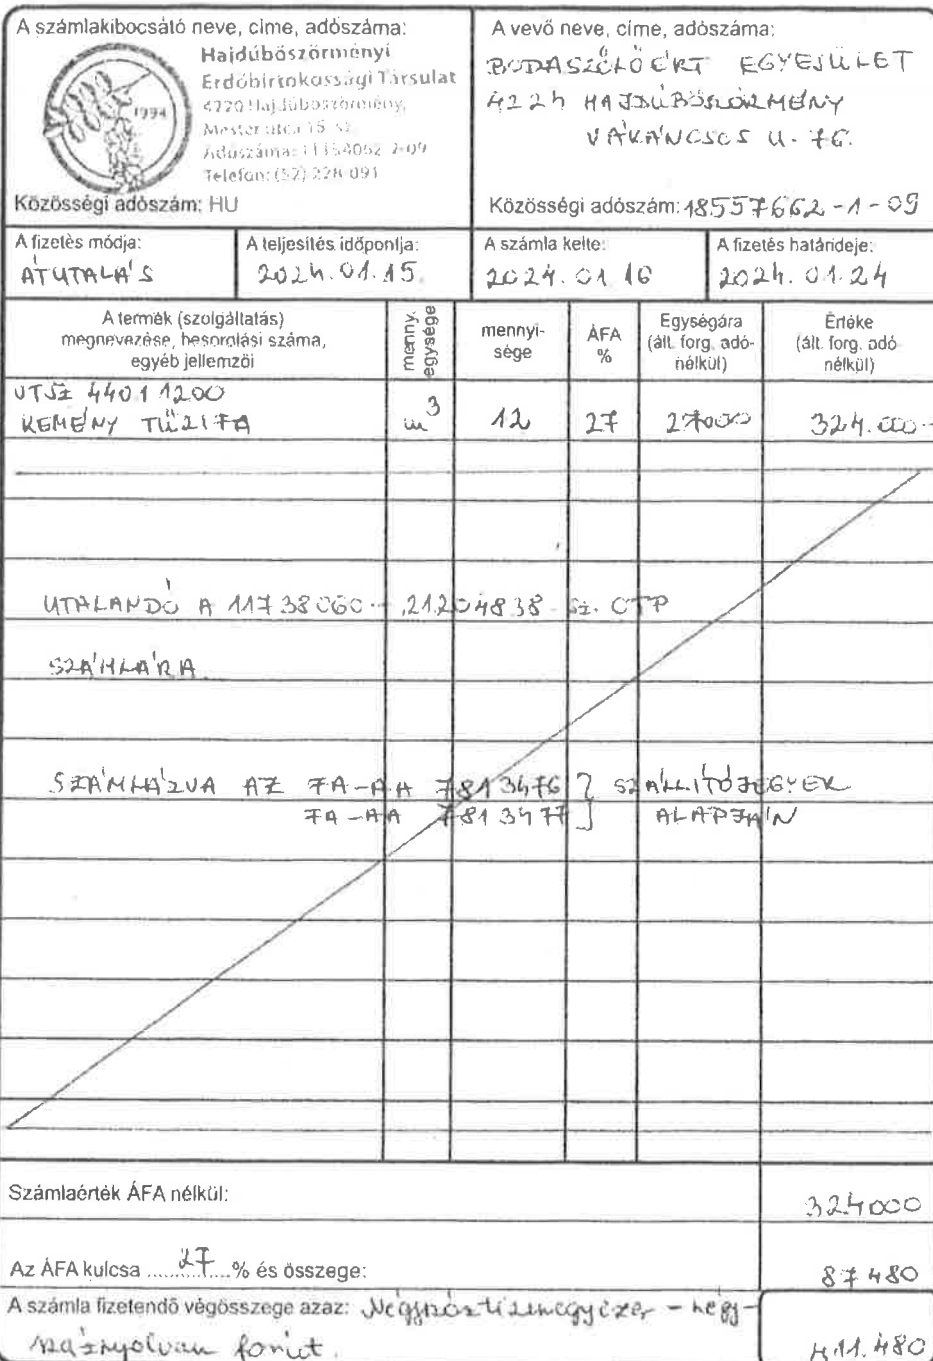 A számlakibocsátó neve, címe, adószáma:
Hajdúböszörményi
Erdőbirtokossági Társulat
4220 Hajdúböszörmény,
Mester utca 15. sz.
Adószáma: 11154052-2-09
Telefon: (52) 228-091
1994
Közösségi adószám: HU
A vevő neve, címe, adószáma:
BODASZŐLŐÉRT EGYESÜLET
4224 HAJDÚBÖSZÖRMÉNY
VÁKÁNCSOS U. 76.
Közösségi adószám: 18557662-1-09
A fizetés módja:
ÁTUTALÁS
A teljesítés időpontja:
2024.01.15.
A számla kelte:
2024.01.16
A fizetés határideje:
2024.01.24
A termék (szolgáltatás)
megnevezése, besorolási száma,
egyéb jellemzői
menny.
egysége
mennyi-
sége
ÁFA
%
Egységára
(ált. forg. adó-
nélkül)
Értéke
(ált. forg. adó
nélkül)
VTSZ 44011200
KEMÉNY TŰZIFA m³ 12 27 27000 324.000.-
UTALANDÓ A 11738060-21204838 sz. OTP
SZÁMLÁRA
SZÁMLÁZVA AZ FA-AA 7813476 } SZÁLLÍTÓJEGYEK
FA-AA 7813477 } ALAPJÁN
Számlaérték ÁFA nélkül: 324000
Az ÁFA kulcsa ....27....% és összege: 87480
A számla fizetendő végösszege azaz: Négyszáztizenegyezer-négy-
száznyolcvan forint. 411.480